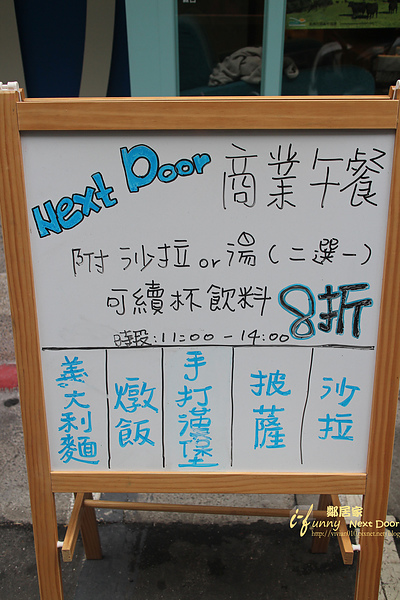 Next Door 商業午餐
附沙拉or湯(二選一)
可續杯飲料 8折
時段:11:00-14:00
義大利麵
燉飯
手打漢堡
披薩
沙拉
i-funny 鄰居家 Next Door
http://vivian010.pixnet.net/blog